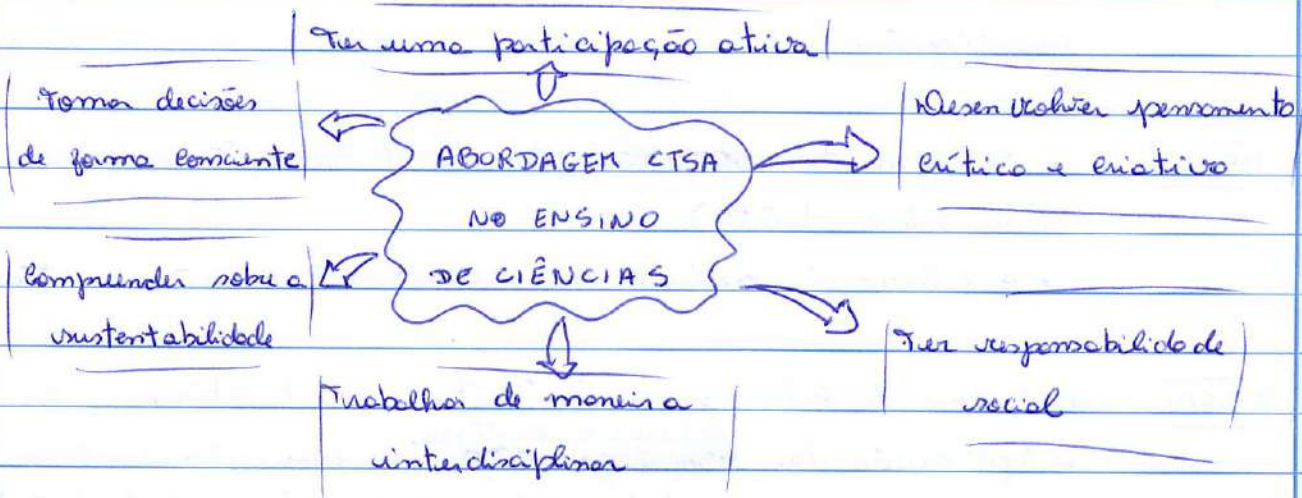 Ter uma participação ativa
Tomar decisões
de forma consciente
ABORDAGEM CTSA
NO ENSINO
DE CIÊNCIAS
Desenvolver pensamento
crítico e criativo
Compreender sobre a
sustentabilidade
Ter responsabilidade
social
Trabalhar de maneira
interdisciplinar